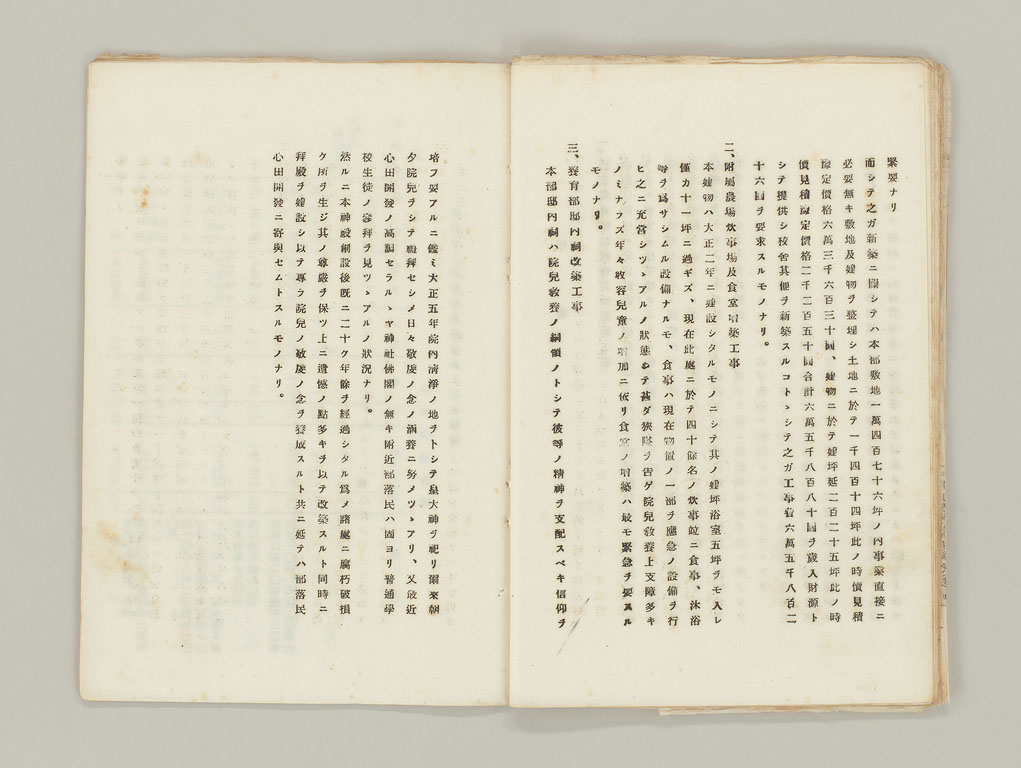 緊要ナリ
而シテ之ガ新築ニ關シテハ本部敷地一萬四百七十六坪ノ內事業直接ニ
必要無キ敷地及建物ヲ整理シ土地ニ於テ一千四百十四坪此ノ時價見積
豫定價格六萬三千六百三十圓、建物ニ於テ建坪延二百二十五坪此ノ時
價見積豫定價格二千二百五十圓合計六萬五千八百八十圓ヲ歲入財源ト
シテ提供シ校舍其他ヲ新築スルコトヽシテ之ガ工事費六萬五千八百二
十六圓ヲ要求スルモノナリ。
二、附屬農場炊事場及食堂增築工事
本建物ハ大正二年ニ建設シタルモノニシテ其ノ建坪浴室五坪ヲモ入レ
僅カ十一坪ニ過ギズ、現在此處ニ於テ四十餘名ノ炊事竝ニ食事、沐浴
等ヲ爲サシムル設備ナルモ、食事ハ現在物置ノ一部ヲ應急ノ設備ヲ行
ヒ之ニ充當シツヽアルノ狀態ニテ甚ダ狹隘ヲ吿ゲ院兒敎養上支障多キ
ノミナラズ年々收容兒童ノ增加ニ依リ食堂ノ增築ハ最モ緊急ヲ要スル
モノナリ。
三、養育部邸內祠改築工事
本部邸內祠ハ院兒敎養ノ綱領ノトシテ彼等ノ精神ヲ支配スベキ信仰ヲ
培フ要アルニ鑑ミ大正五年院內淸淨ノ地ヲトシテ皇大神ヲ祀リ爾來朝
夕院兒ヲシテ禮拜セシメ日々敬虔ノ念ノ涵養ニ努メツヽアリ、又最近
心田開發ノ高調セラルヽヤ神社佛閣ノ無キ附近部落民ハ固ヨリ普通學
校生徒ノ參拜ヲ見ツヽアルノ狀況ナリ。
然ルニ本神殿創設後既ニ二十ケ年餘ヲ經過シタル爲ノ諸處ニ腐朽破損
ケ所ヲ生ジ其ノ尊嚴ヲ保ツ上ニ遺憾ノ點多キヲ以テ改築スルト同時ニ
拜殿ヲ建設シ以テ專ラ院兒ノ敬虔ノ念ヲ養成スルト共ニ延テハ部落民
心田開發ニ寄與セムトスルモノナリ。